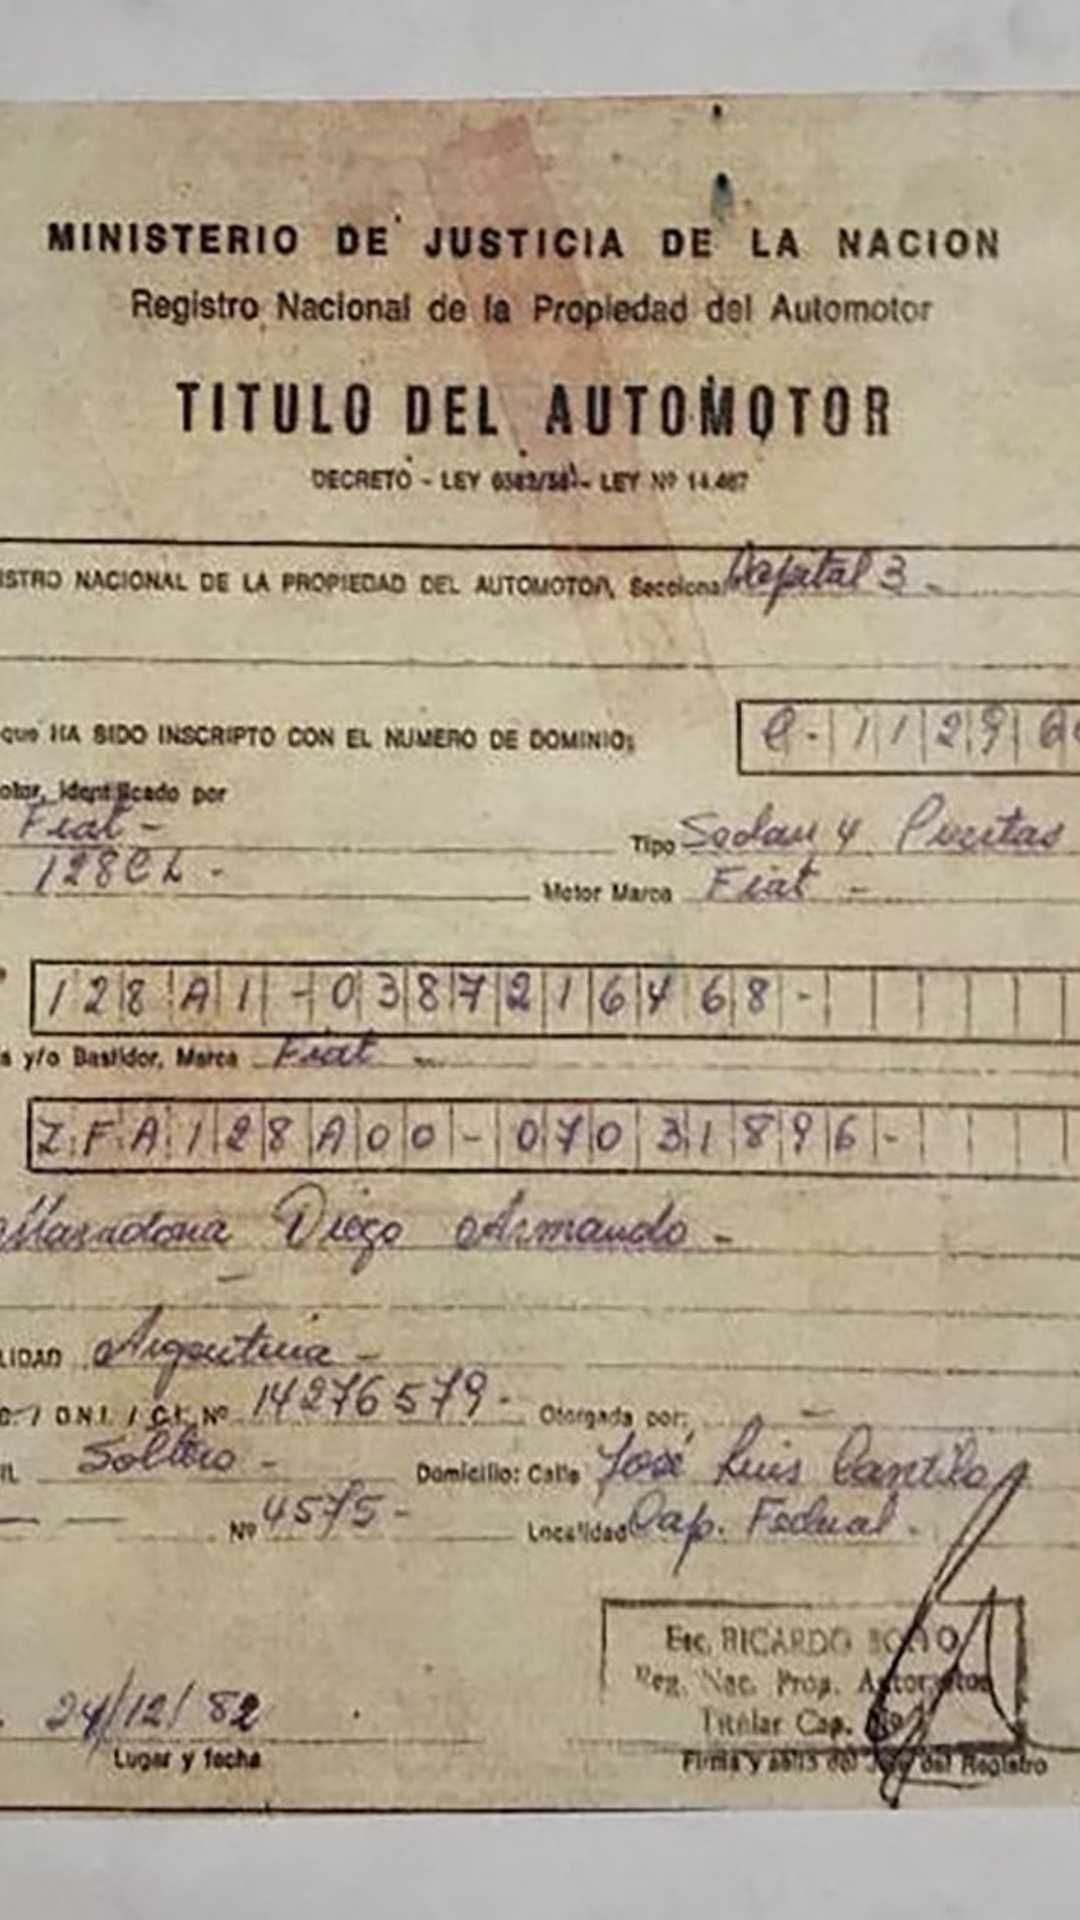 MINISTERIO DE JUSTICIA DE LA NACION
Registro Nacional de la Propiedad del Automotor
TITULO DEL AUTOMOTOR
DECRETO - LEY 6582/58 - LEY Nº 14.467
ISTRO NACIONAL DE LA PROPIEDAD DEL AUTOMOTOR, Seccional Capital 3 -
que HA SIDO INSCRIPTO CON EL NUMERO DE DOMINIO: C-11296
otor, identificado por
Fiat - Tipo Sedan 4 Puertas
128CL - Motor Marca Fiat -
128A1-0387216468-
s y/o Bastidor, Marca Fiat -
ZFA128A00-07031896-
Maradona Diego Armando -
LIDAD Argentina -
/ D.N.I. / C.I. Nº 14276579 - Otorgada por: -
IL Soltero - Domicilio: Calle José Luis Cantilo
Nº 4575 - Localidad Cap. Federal.
Esc. RICARDO
Reg. Nac. Prop. Automotor
24/12/82 Titular Cap. Nº
Lugar y fecha Firma y sello del Jefe del Registro